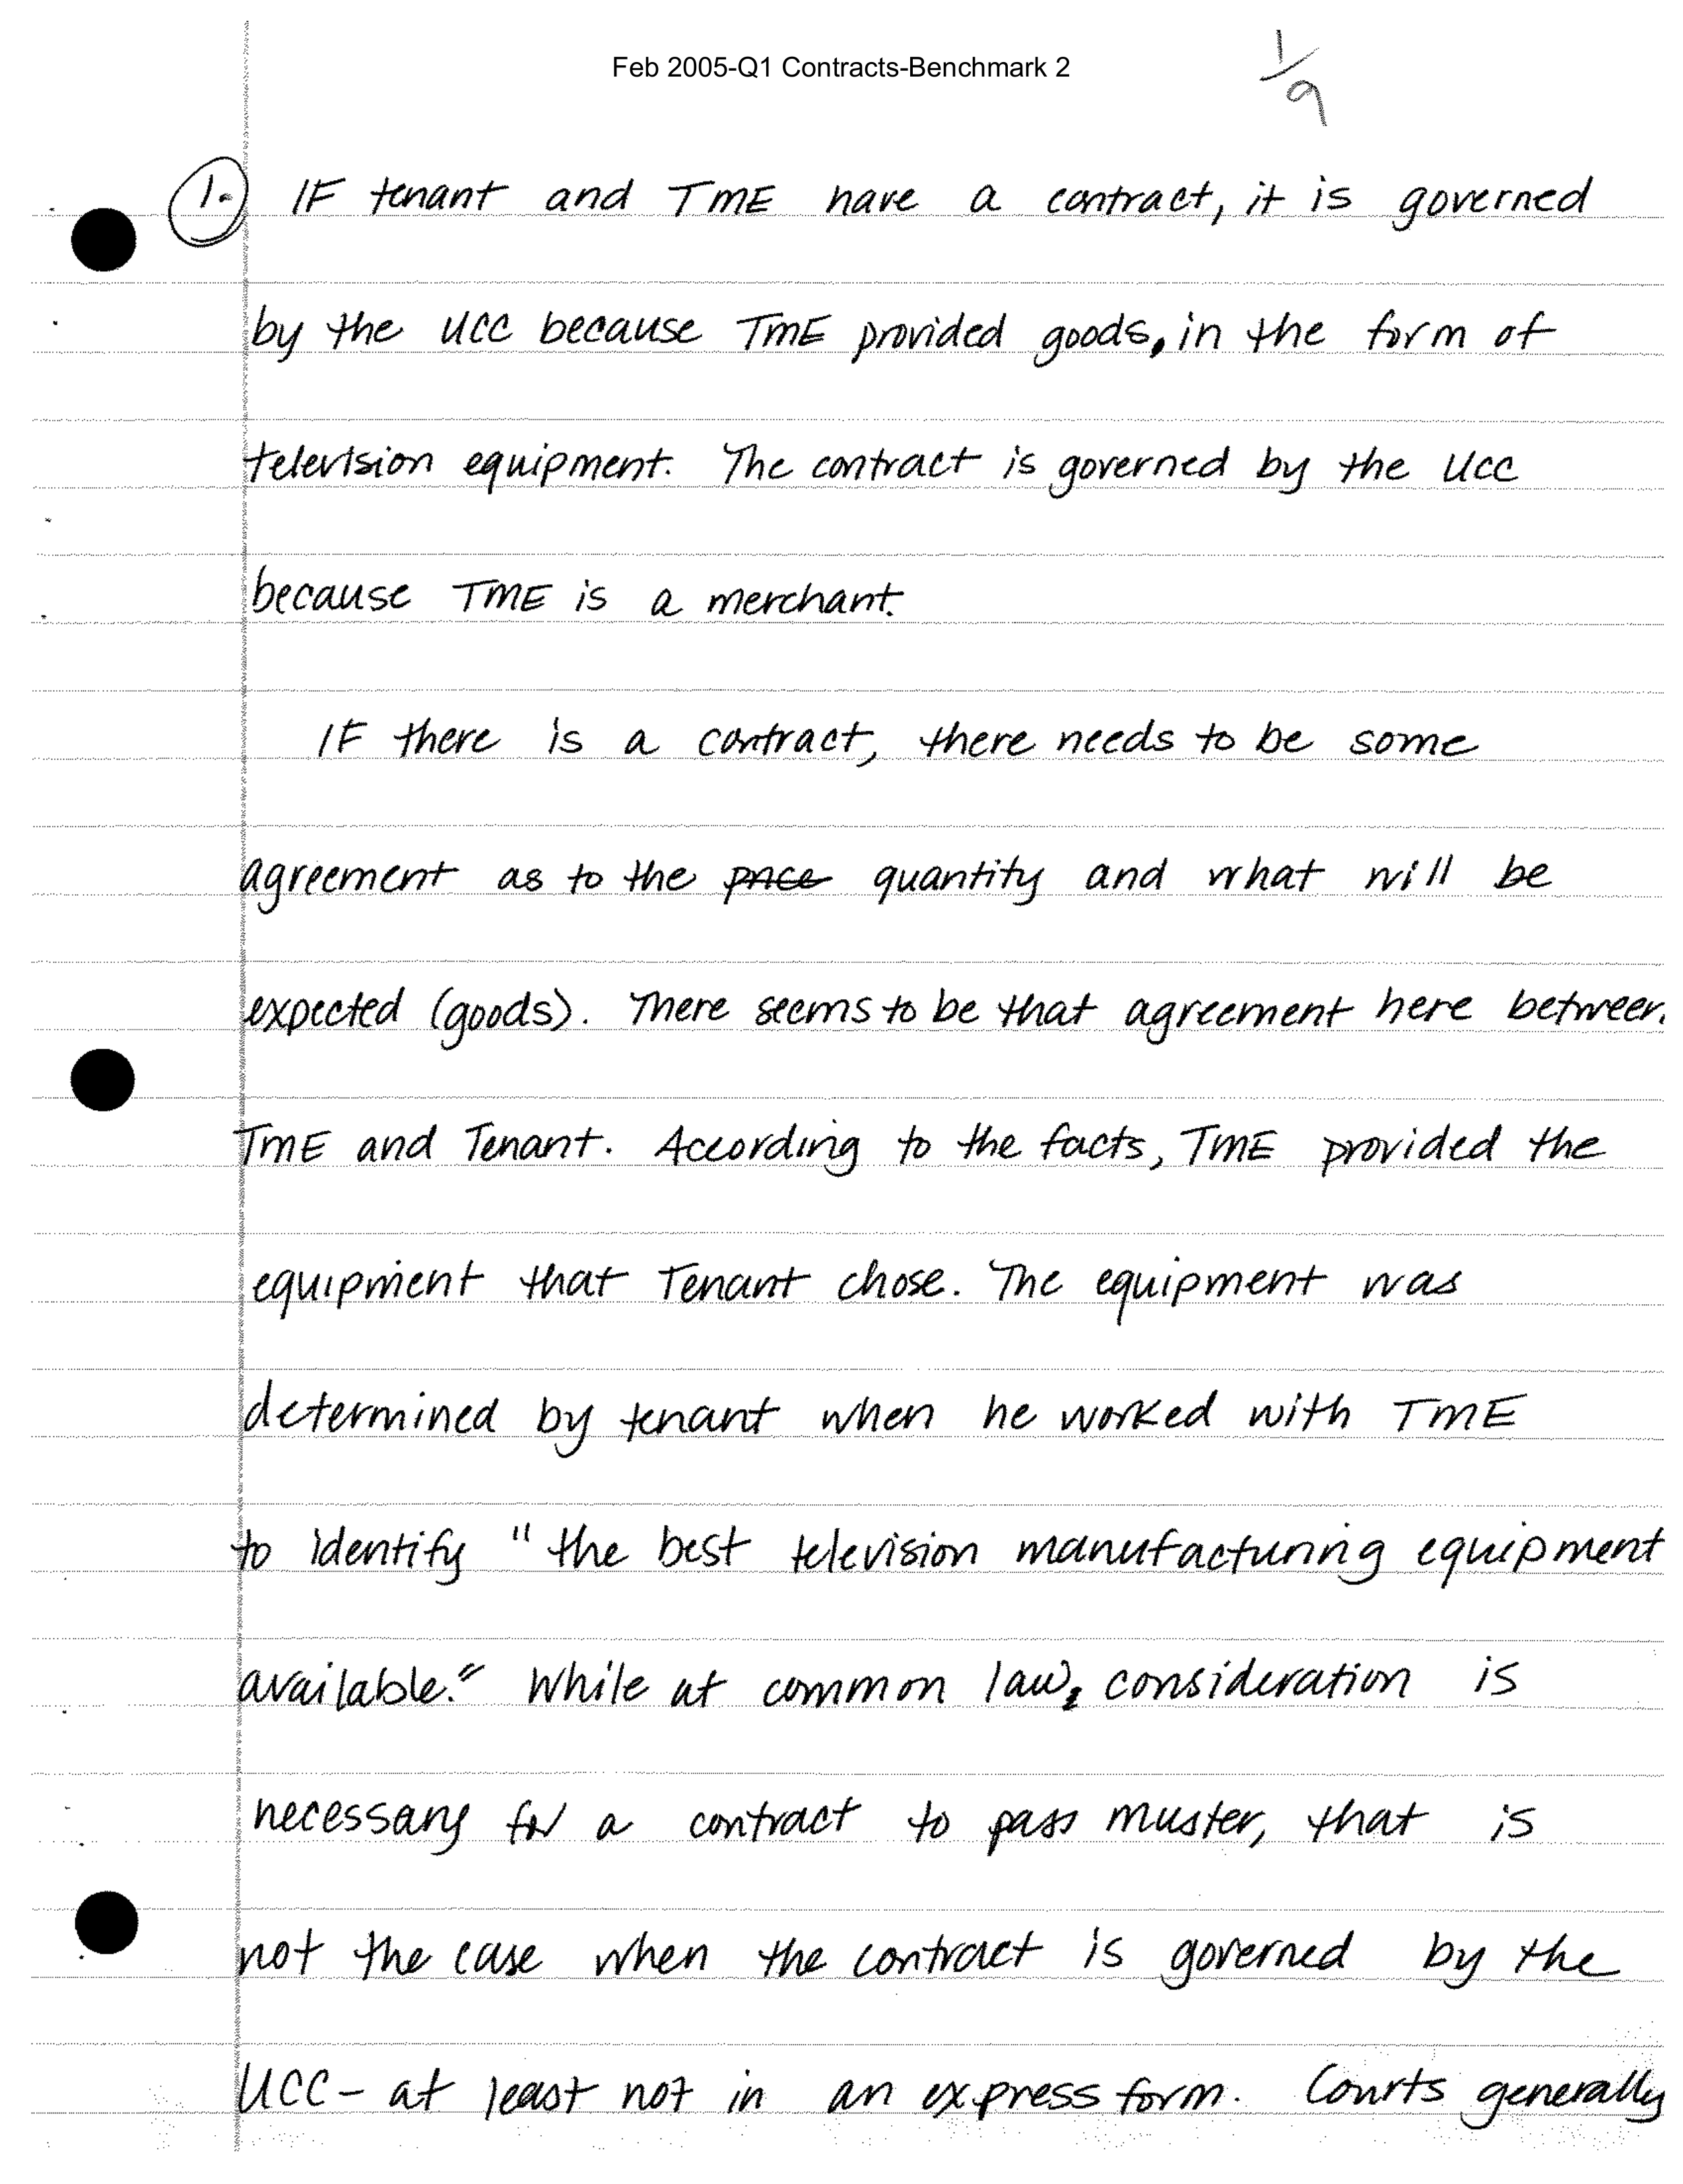 Feb 2005-Q1 Contracts-Benchmark 2
1/9
1. IF tenant and TME have a contract, it is governed
by the UCC because TME provided goods, in the form of
television equipment. The contract is governed by the UCC
because TME is a merchant.
IF there is a contract, there needs to be some
agreement as to the price quantity and what will be
expected (goods). There seems to be that agreement here between
TME and Tenant. According to the facts, TME provided the
equipment that Tenant chose. The equipment was
determined by tenant when he worked with TME
to identify "the best television manufacturing equipment
available." While at common law, consideration is
necessary for a contract to pass muster, that is
not the case when the contract is governed by the
UCC - at least not in an express form. Courts generally